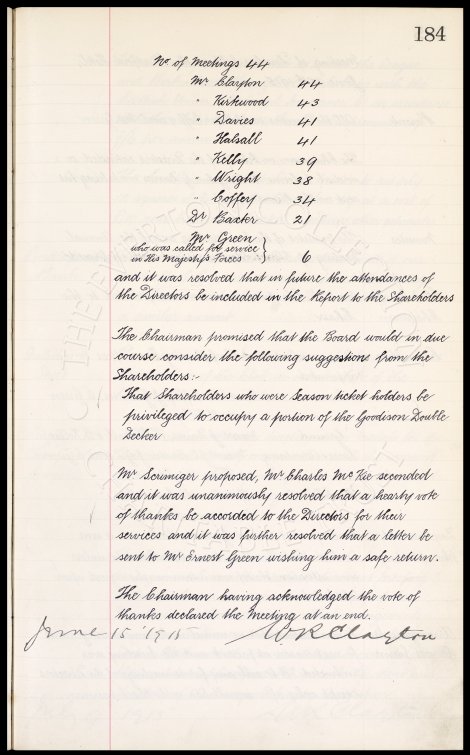 184
No of Meetings 44
Mr Clayton 44
" Kirkwood 43
" Davies 41
" Halsall 41
" Kelly 39
" Wright 38
" Coffey 34
Dr Baxter 21
Mr Green
who was called for service
in His Majesty's Forces } 6
and it was resolved that in future the attendances of
the Directors be included in the Report to the Shareholders
The Chairman promised that the Board would in due
course consider the following suggestions from the
Shareholders:-
That Shareholders who were Season ticket holders be
privileged to occupy a portion of the Goodison Double
Decker
Mr Scrimiger proposed, Mr Charles Mc Kie seconded
and it was unanimously resolved that a hearty vote
of thanks be accorded to the Directors for their
services and it was further resolved that a letter be
sent to Mr Ernest Green wishing him a safe return.
The Chairman having acknowledged the vote of
thanks declared the Meeting at an end.
June 15 WRClayton